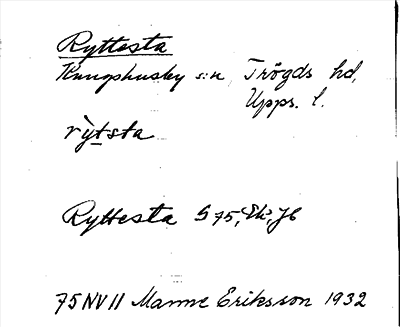 Ryttesta
Kungshusby s:n Trögds hd,
Upps. l.
rỳtsta
Ryttesta G 75, Ek, JC
75 NV 11 Manne Eriksson 1932